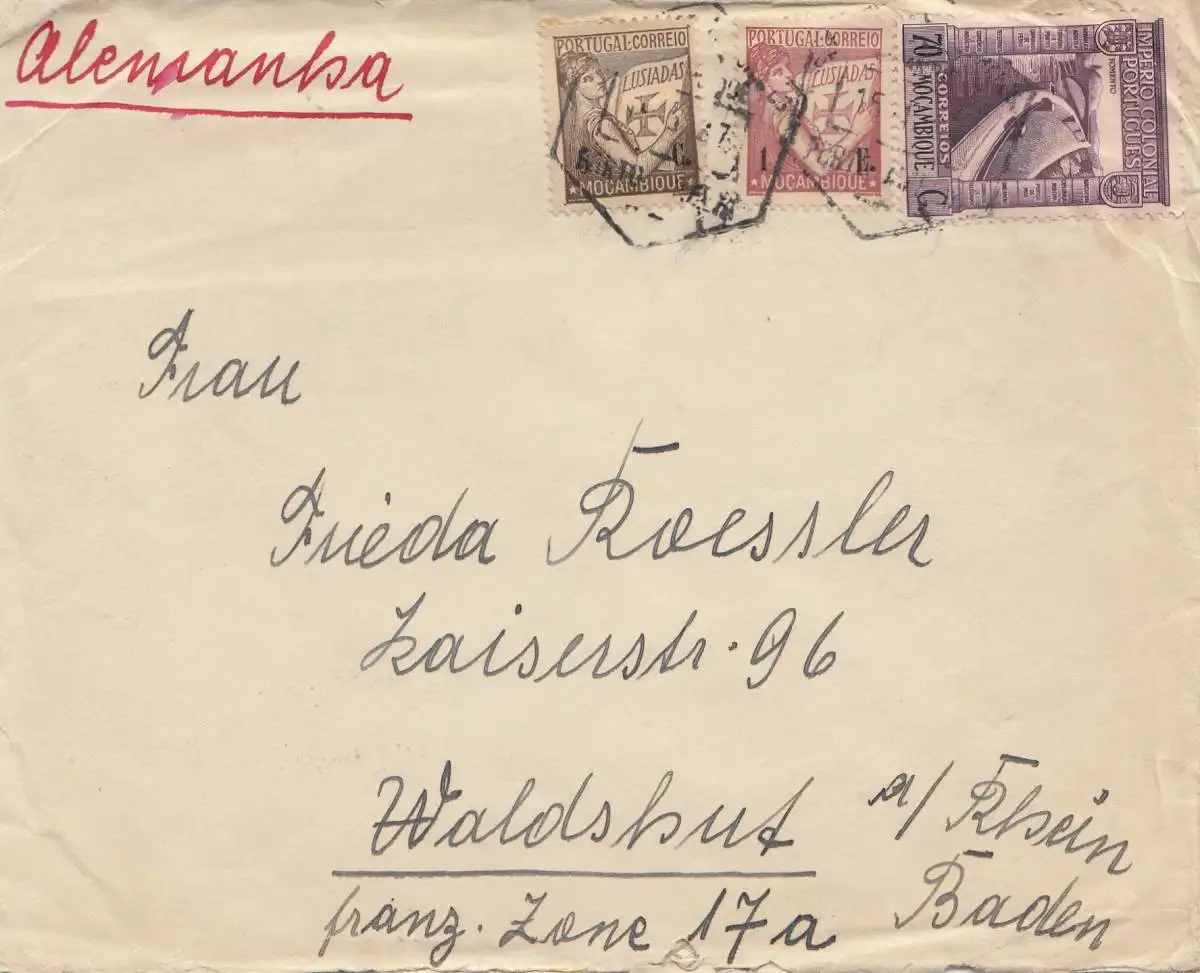 Alemanha
PORTUGAL-CORREIO
LUSIADAS
C.
★ MOÇAMBIQUE ★
PORTUGAL-CORREIO
LUSIADAS
1 E.
★ MOÇAMBIQUE ★
IMPÉRIO COLONIAL
PORTUGUÊS
FOMENTO
CORREIOS
70 MOÇAMBIQUE C.
Frau
Frieda Roessler
Kaiserstr. 96
Waldshut a/ Rhein
franz. Zone 17a Baden